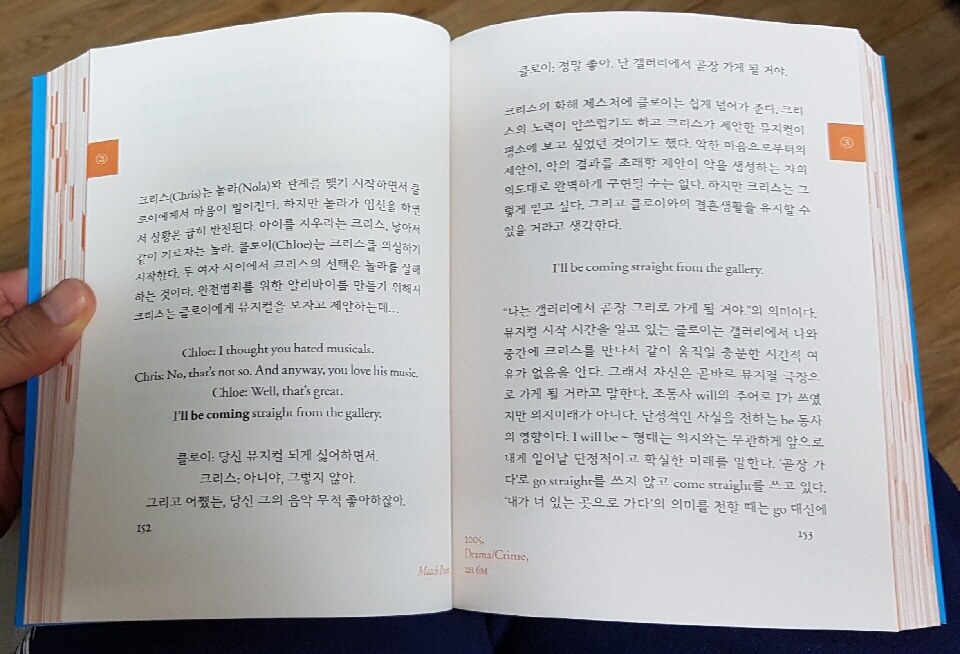 ②
크리스(Chris)는 놀라(Nola)와 관계를 맺기 시작하면서 클
로이에게서 마음이 멀어진다. 하지만 놀라가 임신을 하면
서 상황은 급히 반전된다. 아이를 지우라는 크리스. 낳아서
같이 기르자는 놀라. 클로이(Chloe)는 크리스를 의심하기
시작한다. 두 여자 사이에서 크리스의 선택은 놀라를 살해
하는 것이다. 완전범죄를 위한 알리바이를 만들기 위해서
크리스는 클로이에게 뮤지컬을 보자고 제안하는데...
Chloe: I thought you hated musicals.
Chris: No, that's not so. And anyway, you love his music.
Chloe: Well, that's great.
I'll be coming straight from the gallery.
클로이: 당신 뮤지컬 되게 싫어하면서.
크리스: 아니야, 그렇지 않아.
그리고 어쨌든, 당신 그의 음악 무척 좋아하잖아.
152
Match Point
클로이: 정말 좋아. 난 갤러리에서 곧장 가게 될 거야.
크리스의 화해 제스처에 클로이는 쉽게 넘어가 준다. 크리
스의 노력이 안쓰럽기도 하고 크리스가 제안한 뮤지컬이
평소에 보고 싶었던 것이기도 했다. 악한 마음으로부터의
제안이, 악의 결과를 초래할 제안이 악을 생성하는 자의
의도대로 완벽하게 구현될 수는 없다. 하지만 크리스는 그
렇게 믿고 싶다. 그리고 클로이와의 결혼생활을 유지할 수
있을 거라고 생각한다.
I'll be coming straight from the gallery.
"나는 갤러리에서 곧장 그리로 가게 될 거야."의 의미이다.
뮤지컬 시작 시간을 알고 있는 클로이는 갤러리에서 나와
중간에 크리스를 만나서 같이 움직일 충분한 시간적 여
유가 없음을 안다. 그래서 자신은 곧바로 뮤지컬 극장으
로 가게 될 거라고 말한다. 조동사 will의 주어로 I가 쓰였
지만 의지미래가 아니다. 단정적인 사실을 전하는 be 동사
의 영향이다. I will be ~ 형태는 의지와는 무관하게 앞으로
내게 일어날 단정적이고 확실한 미래를 말한다. '곧장 가
다'로 go straight를 쓰지 않고 come straight를 쓰고 있다.
'내가 너 있는 곳으로 가다'의 의미를 전할 때는 go 대신에
153
2005,
Drama/Crime,
2H 6M